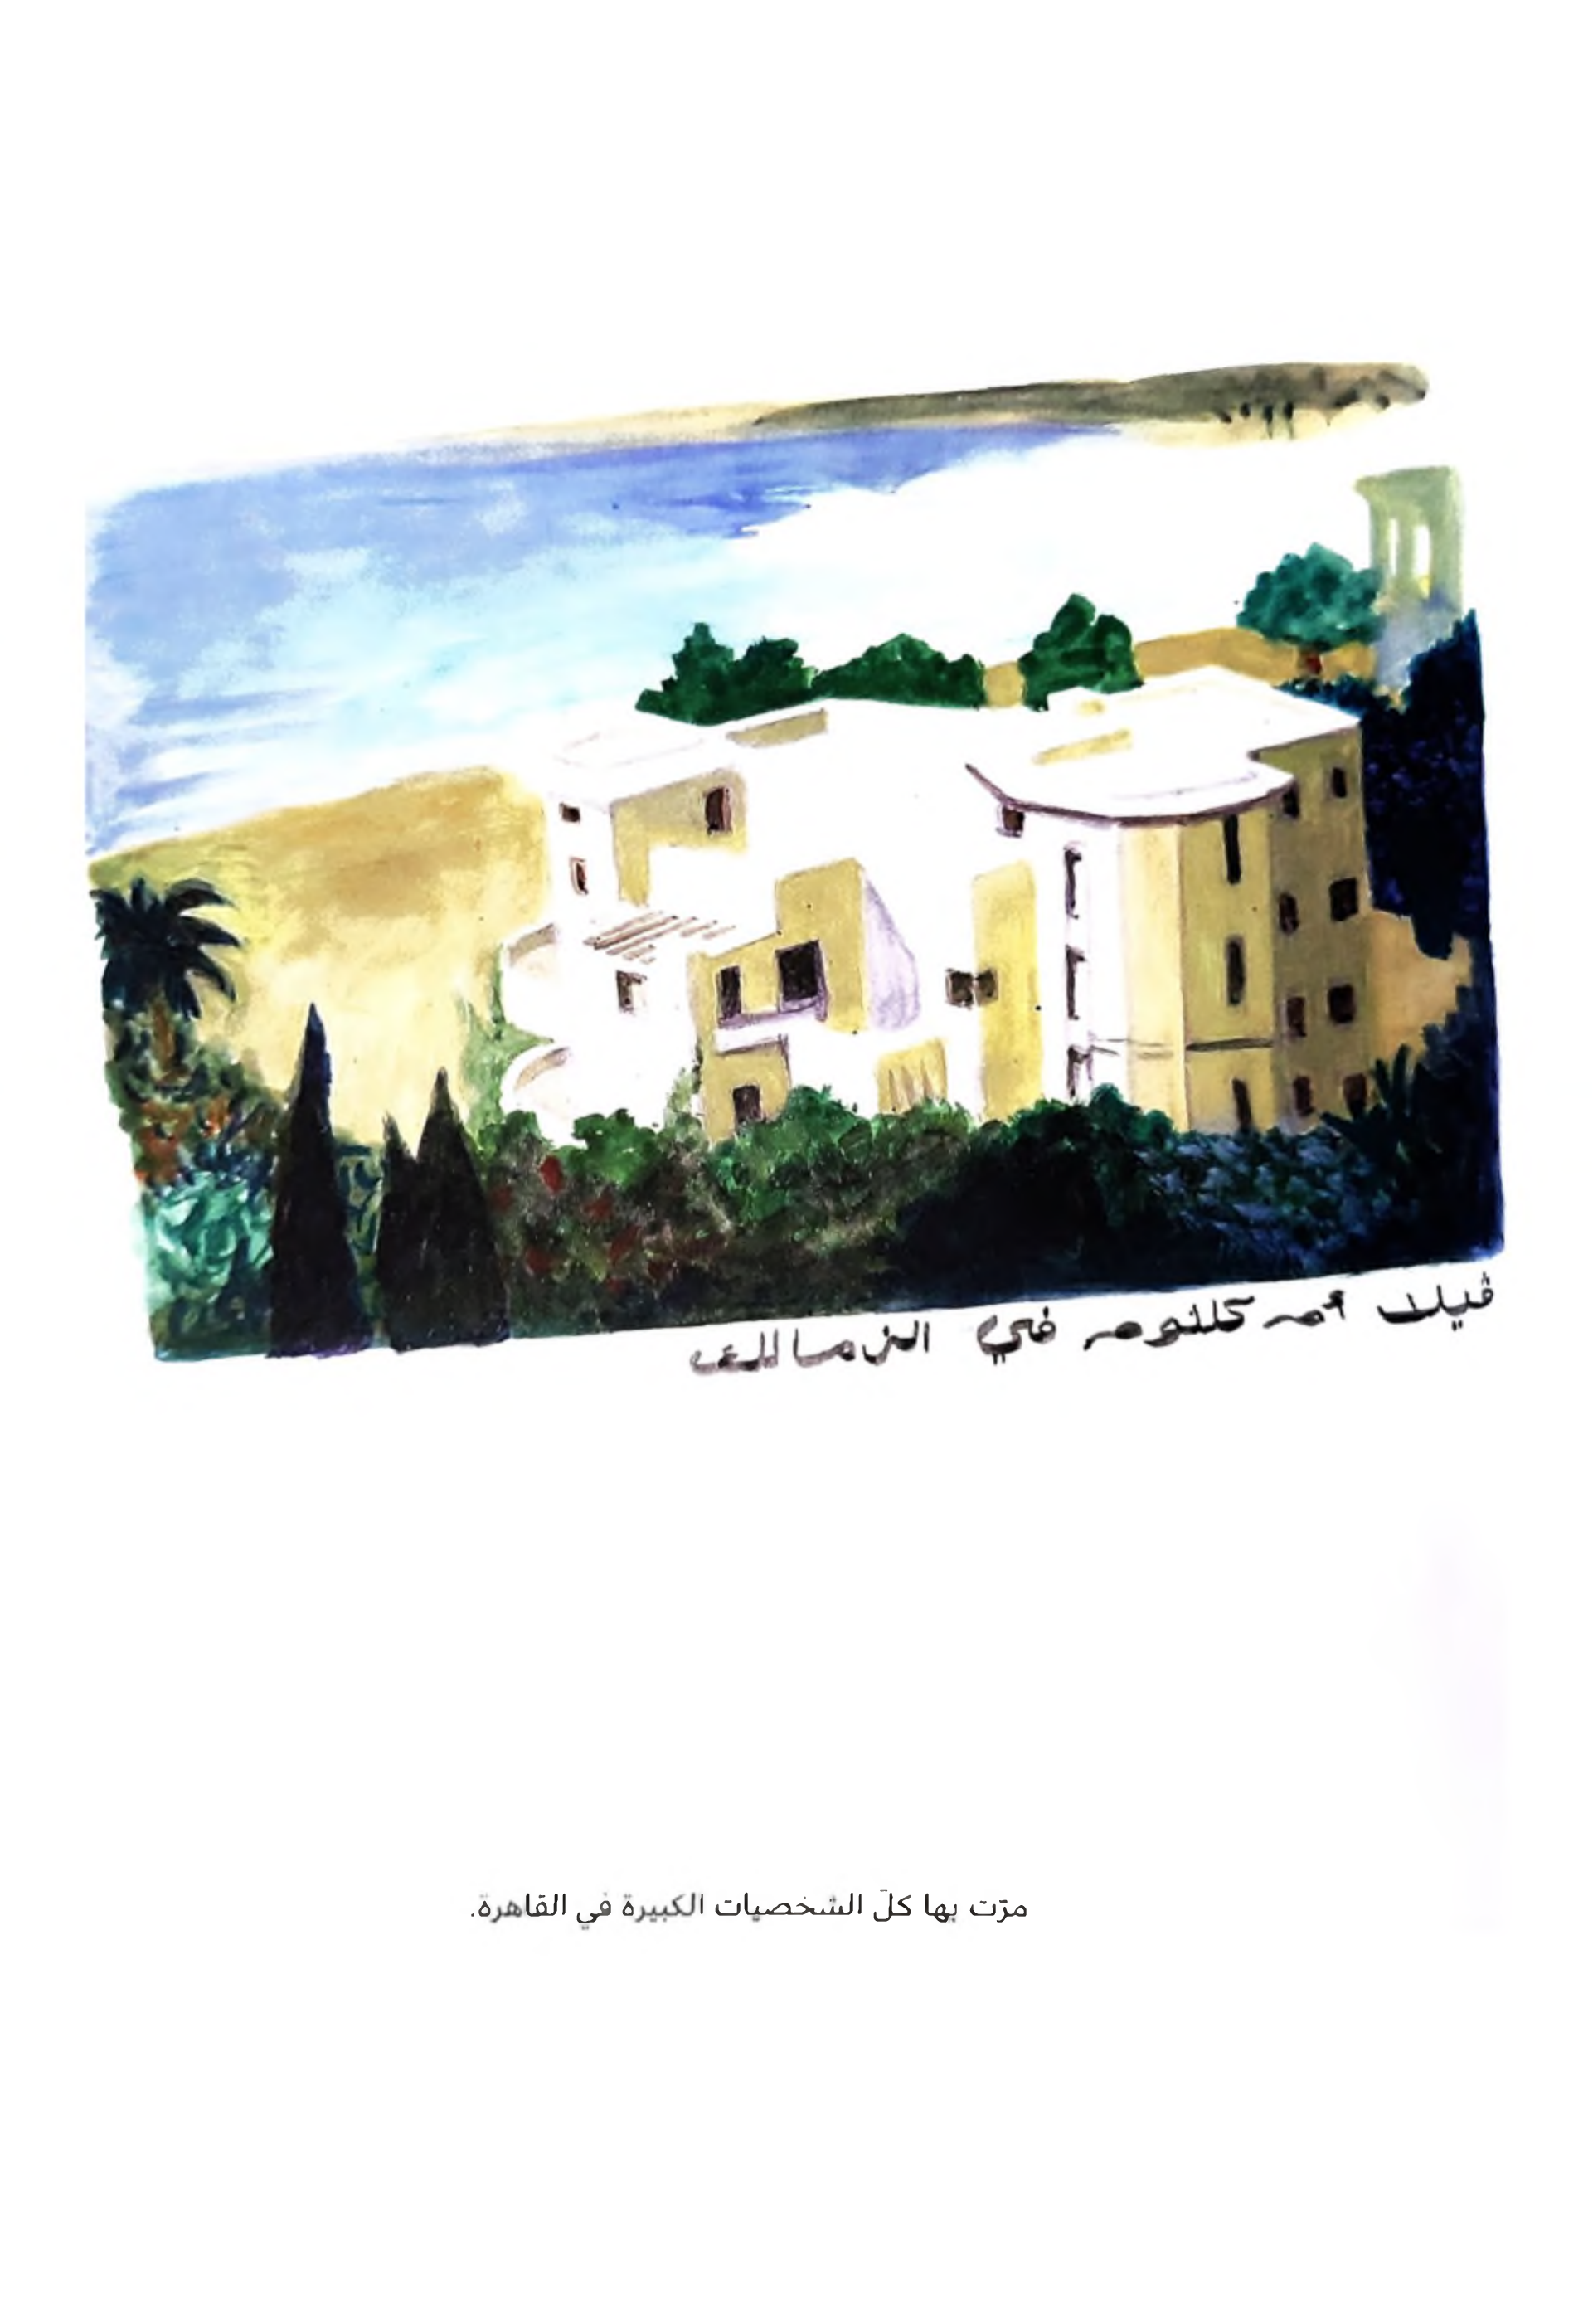 فيلا أم كلثوم في الزمالك
مرّت بها كلّ الشخصيات الكبيرة في القاهرة.